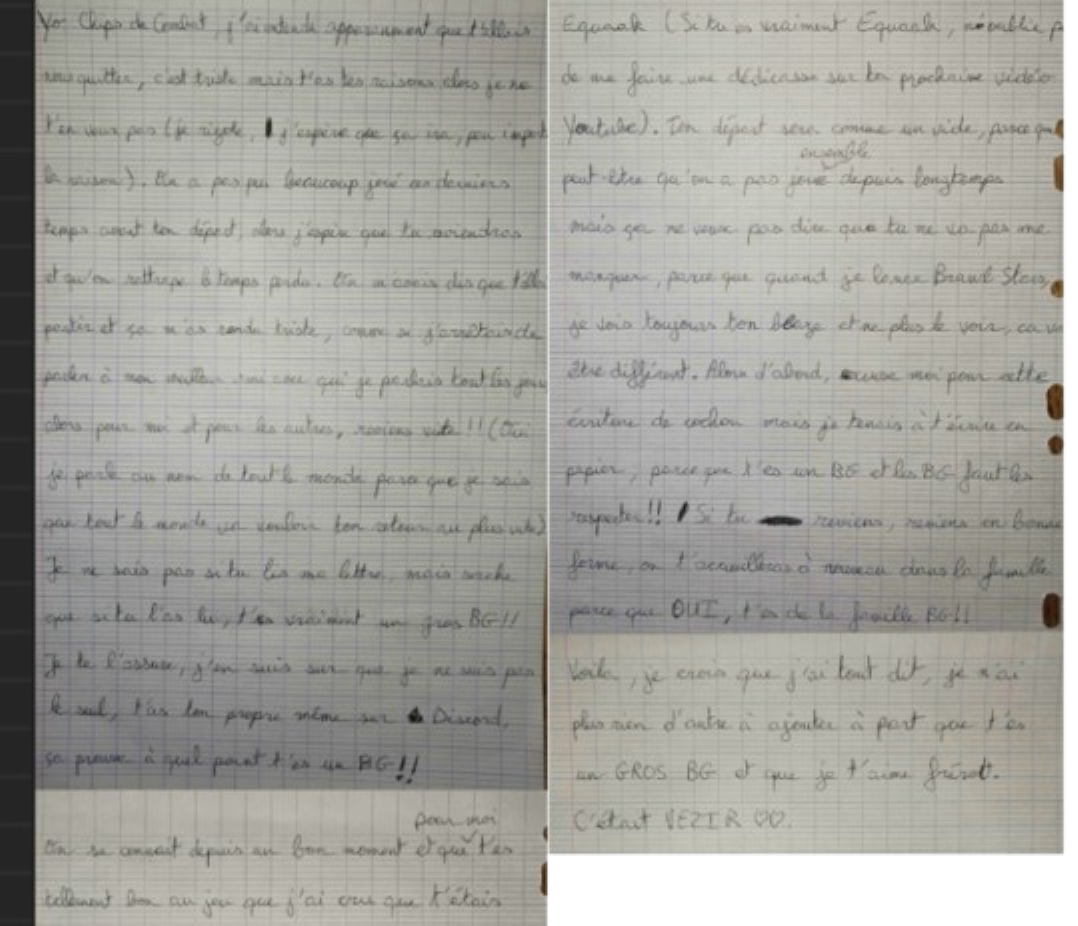 Yo! Chips de Combat, j'ai entendu apparemment que t'allais
nous quitter, c'est triste mais t'as tes raisons alors je ne
t'en veux pas (je rigole, j'espère que ça ira, peu import
la raison). On a pas pu beaucoup joué ces derniers
temps avant ton départ, alors j'espère que tu reviendras
et qu'on rattrape le temps perdu. On m'avais dis que t'allais
partir et ça m'as rendu triste, comme si j'arrêtais de
parler à mon meilleur ami avec qui je parlais tout les jours
alors pour moi et pour les autres, reviens vite!! (Oui
je parle au nom de tout le monde parce que je sais
que tout le monde va vouloir ton retour au plus vite)
Je ne sais pas si tu lis ma lettre, mais sache
que si tu l'as lu, t'es vraiment un gros BG!!
Je te l'assure, j'en suis sur que je ne suis pas
le seul, t'as ton propre même sur Discord,
ça prouve à quel point t'es un BG!!
pour moi
On se connait depuis un bon moment et que t'es
tellement bon au jeu que j'ai cru que t'étais
Equaak (Si tu es vraiment Equaak, n'oublie p
de me faire une dédicasse sur ton prochaine vidéo
Youtube). Ton départ sera comme un vide, parce que
ensemble
peut-être qu'on a pas joué depuis longtemps
mais ça ne veux pas dire que tu ne va pas me
manquer, parce que quand je lance Brawl Stars,
je vois toujours ton blaze et ne plus le voir, ca va
être différent. Alors d'abord, excuse moi pour cette
écriture de cochon mais je tenais à t'écrire en
papier, parce que t'es un BG et les BG faut les
respecter!! Si tu reviens, reviens en bonne
forme, on t'accuilleras à nouveau dans la famille
parce que OUI, t'es de la famille BG!!
Voila, je crois que j'ai tout dit, je n'ai
plus rien d'autre à ajouter à part que t'es
un GROS BG et que je t'aime frérot.
C'était VEZIR ♡♡.